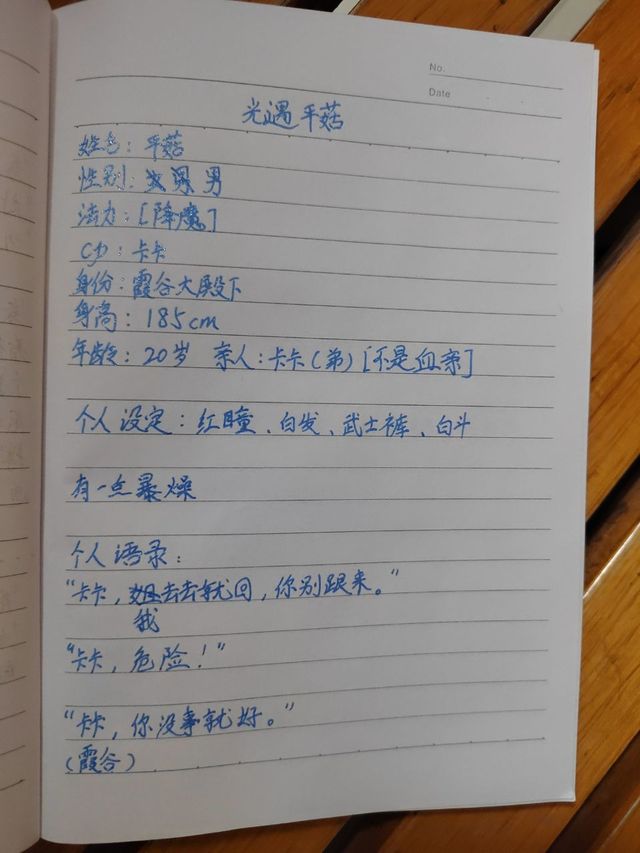 No.
Date
光遇平菇
姓名：平菇
性别：男
法力：[降魔]
cp：卡卡
身份：霞谷大殿下
身高：185cm
年龄：20岁 亲人：卡卡（弟）[不是血亲]
个人设定：红瞳、白发、武士裤、白斗
有一点暴燥
个人语录：
“卡卡，去去就回，你别跟来。”
我
“卡卡，危险！”
“卡卡，你没事就好。”
（霞谷）